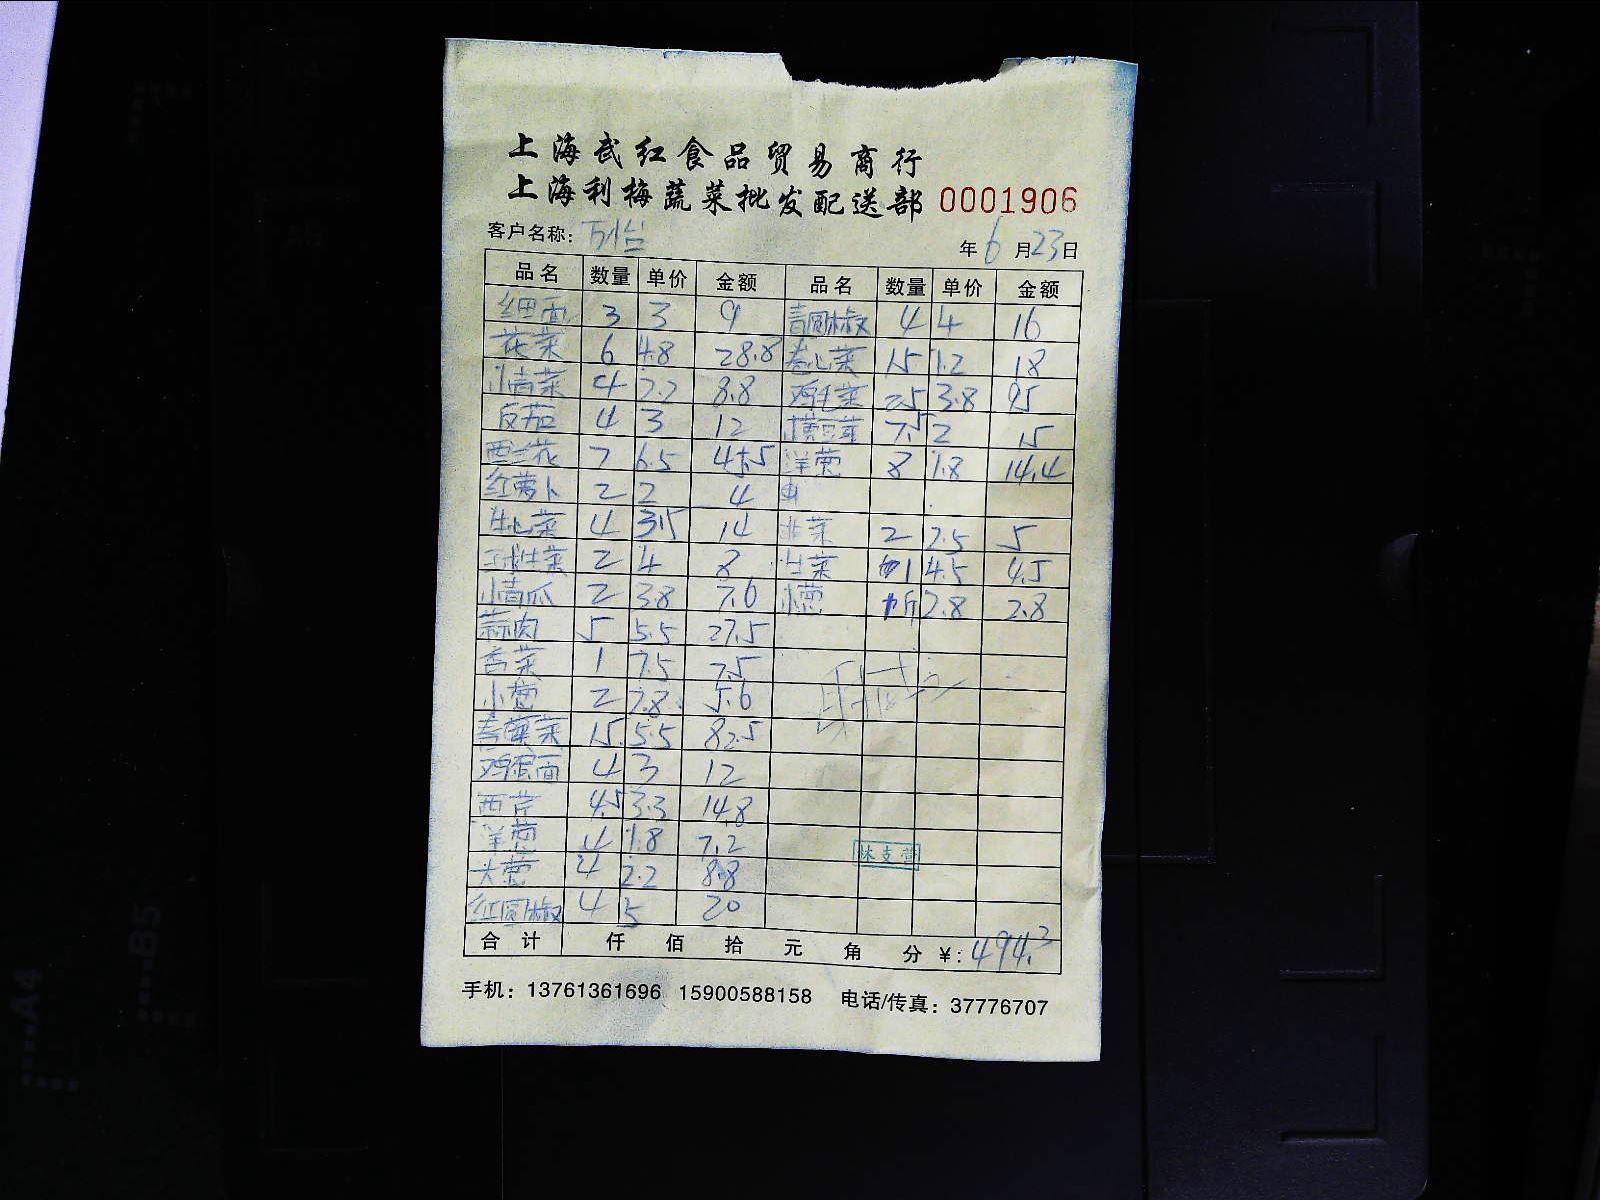 上海武红食品贸易商行
上海利梅蔬菜批发配送部 0001906
客户名称: 万怡 年 6 月 23 日
品名 数量 单价 金额 品名 数量 单价 金额
细面 3 3 9 青圆椒 4 4 16
花菜 6 4.8 28.8 卷心菜 15 1.2 18
小青菜 4 2.2 8.8 鸡毛菜 25 3.8 95
反茄 4 3 12 7.5 2 15
西兰花 7 6.5 45.5 洋葱 8 1.8 14.4
红萝卜 2 2 4
生心菜 4 3.5 14 韭菜 2 2.5 5
球生菜 2 4 8 生菜 1 4.5 4.5
小青瓜 2 3.8 7.6 小葱 1斤 2.8 2.8
蒜肉 5 5.5 27.5
香菜 1 7.5 7.5
小葱 2 2.8 5.6
15 5.5 82.5
鸡蛋面 4 3 12
西芹 4.5 3.3 14.8
洋葱 4 1.8 7.2
大葱 4 2.2 8.8
红圆椒 4 5 20
合计 仟 佰 拾 元 角 分 ¥: 494.3
手机: 13761361696 15900588158 电话/传真: 37776707